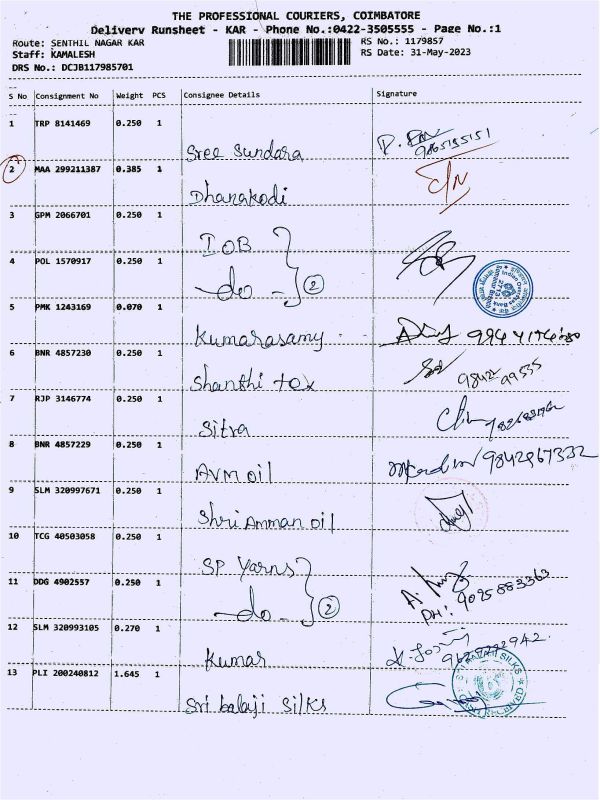 THE PROFESSIONAL COURIERS, COIMBATORE
Delivery Runsheet - KAR - Phone No.:0422-3505555 - Page No.:1
Route: SENTHIL NAGAR KAR RS No.: 1179857
Staff: KAMALESH RS Date: 31-May-2023
DRS No.: DCJB117985701
S No Consignment No Weight PCS Consignee Details Signature
1 TRP 8141469 0.250 1
Sree Sundara
2 MAA 299211387 0.385 1
Dhanakodi
3 GPM 2066701 0.250 1
IOB
4 POL 1570917 0.250 1
-do- 2
5 PMK 1243169 0.070 1
Kumarasamy
6 BNR 4857230 0.250 1
Shanthi tex
9842 99535
7 RJP 3146774 0.250 1
Sitra
8 BNR 4857229 0.250 1
AVM oil 9842967332
9 SLM 320997671 0.250 1
Shri Amman oil
10 TCG 40503058 0.250 1
SP Yarns
11 DDG 4902557 0.250 1
-do- 2
PH: 9095883363
12 SLM 320993105 0.270 1
Kumar
13 PLI 200240812 1.645 1
Sri balaji Silks